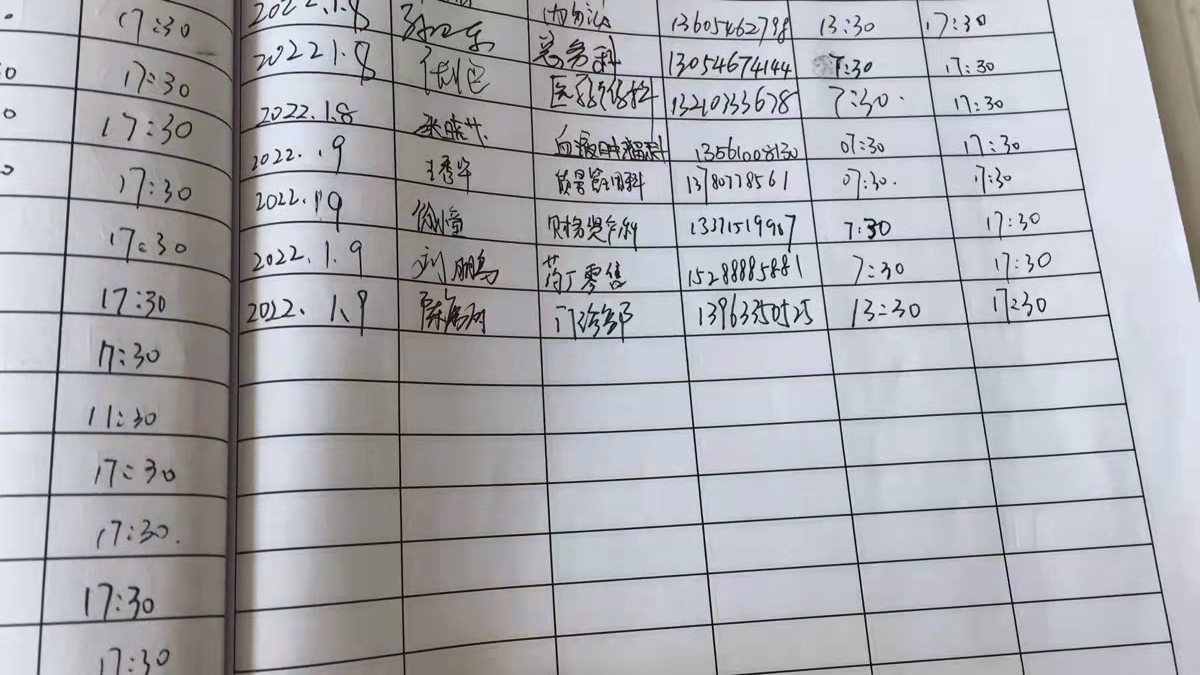 17:30
17:30
17:30
17:30
17:30
17:30
17:30
11:30
17:30
17:30.
17:30
17:30
2022.1.8 13605462798 13:30 17:30
2022 1.8 商务科 13054674144 7:30 17:30
医疗保险科 13210333678 7:30. 17:30
2022.1.8 血液肿瘤科 13561008130 07:30 17:30
2022.1.9 王秀华 质量管理科 13780778561 07:30. 17:30
2022.1.9 财务资产科 13371519907 7:30 17:30
2022.1.9 刘鹏 药厂零售 15288885881 7:30 17:30
2022.1.9 门诊部 13963350525 13:30 17:30